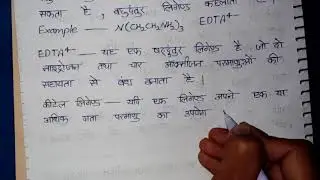 सकता है, बहुदंतुर लिगेण्ड कहलाता है।
Example — N(CH₂CH₂NH₂)₃ EDTA⁴⁻
EDTA⁴⁻ — यह एक षटदंतुर लिगेण्ड है जो दो
नाइट्रोजन तथा चार ऑक्सीजन परमाणुओं की
सहायता से बंध बनाता है।
कीटेल लिगेण्ड — यदि एक लिगेण्ड अपने एक या
अधिक दाता परमाणु का उपयोग